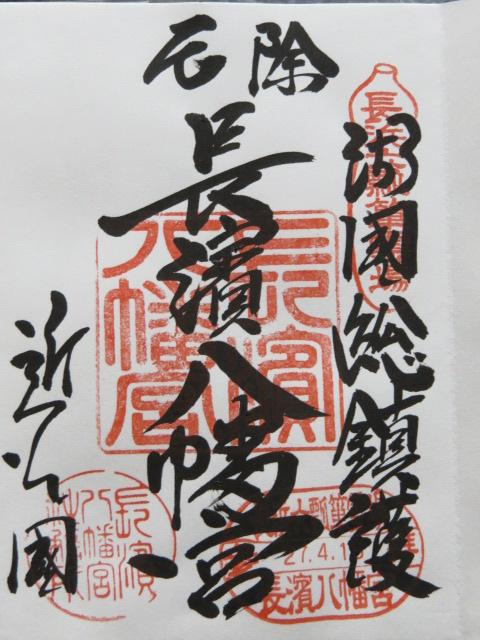 除
厄
湖國総鎮護
長濱八幡宮
近江国
長濱八幡宮
長濱八幡宮
27.4.1
長濱八幡宮